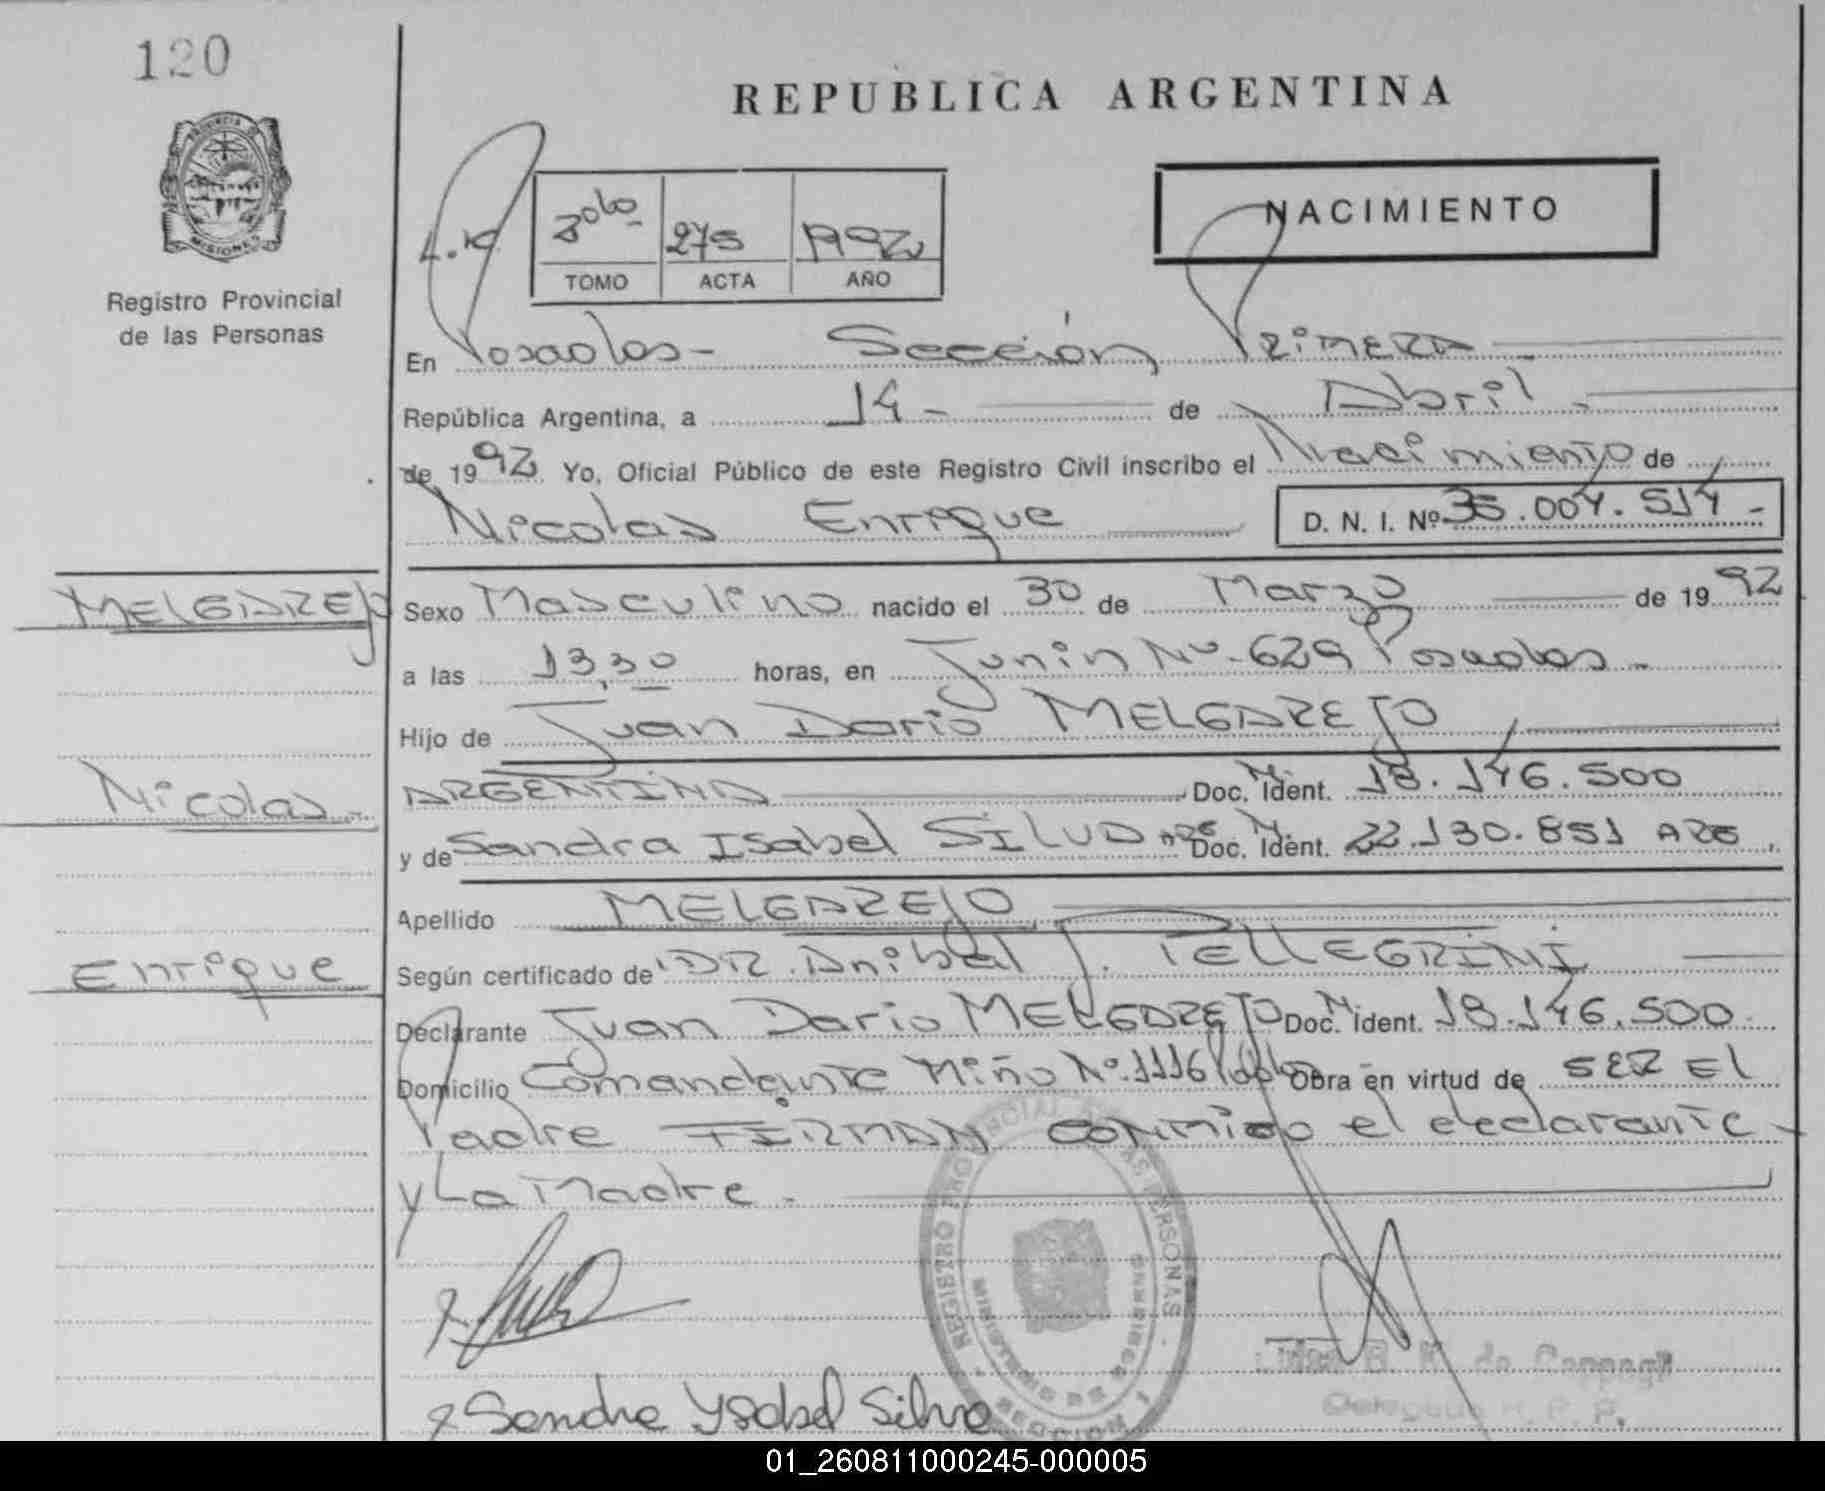 120
REPUBLICA ARGENTINA
PROVINCIA DE
MISIONES
Registro Provincial
de las Personas
NACIMIENTO
275 1992
TOMO ACTA AÑO
En Posadas- Sección Primera
República Argentina, a 14- de Abril-
de 1992 Yo, Oficial Público de este Registro Civil inscribo el Nacimiento de
Nicolas Enrique D. N. I. Nº 35.004.514-
MELGAREJO
Sexo Masculino nacido el 30 de Marzo de 1992
a las 13,30 horas, en Junin Nº-629 Posadas-
Hijo de Juan Dario MELGAREJO
Nicolas-
ARGENTINA Doc. M. Ident. 18.146.500
y de Sandra Isabel SILVA ARG Doc. M. Ident. 22.130.851 ARG
Apellido MELGAREJO
Enrique
Según certificado de DR. Anibal J. PELLEGRINI
Declarante Juan Dario MELGAREJO Doc. M. Ident. 18.146.500
Domicilio Comandante Miño Nº.1116 Obra en virtud de SER El
Padre FIRMAN conmigo el declarante
y La Madre-
REGISTRO PROVINCIAL DE LAS PERSONAS
MINISTERIO DE GOBIERNO
SECCION 1
Sandra Ysabel Silva
Delegada R. P. P.
01_260811000245-000005